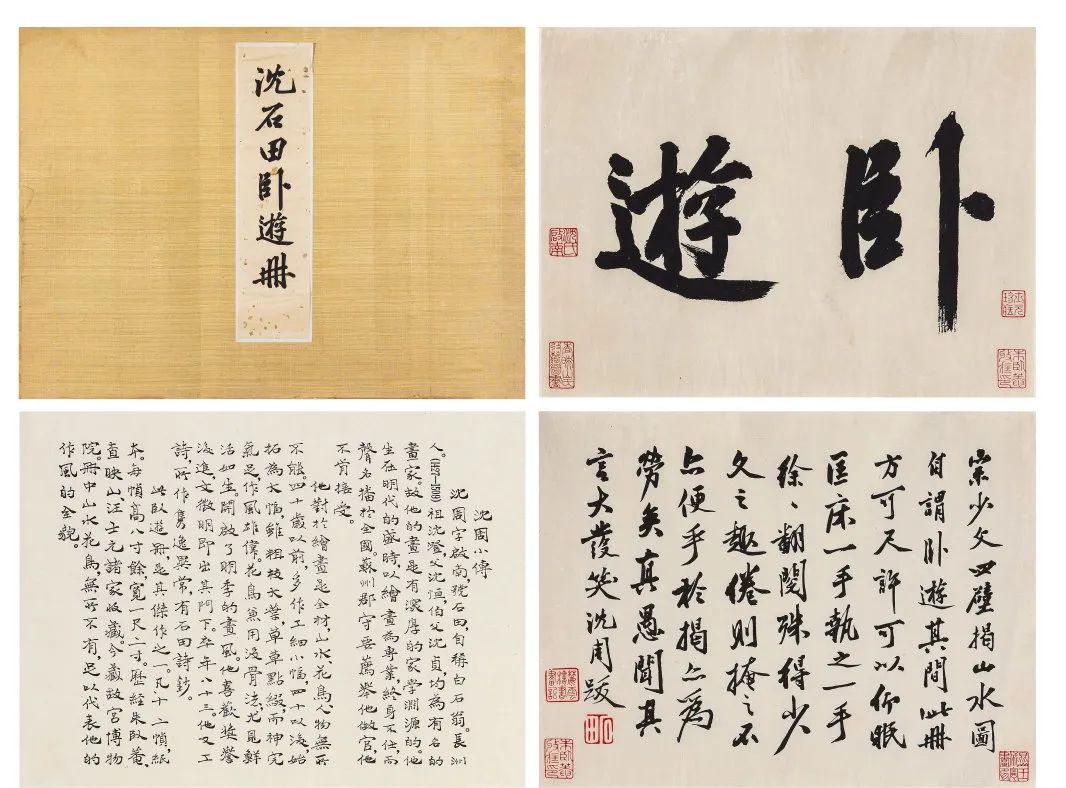 沈石田卧遊冊
卧遊
沈氏啟南
朱卧菴收藏印
沈周小傳
沈周字啟南,號石田,自稱白石翁。長洲
人。(1427-1509)祖沈澄父沈恒伯父沈貞均為有名的
畫家。故他的畫是有濃厚的家學淵源的他
生在明代的盛時以繪畫為專業,終身不仕,而
聲名播於全國。蘇州郡守要薦舉他做官,他
不肯接受。
他對於繪畫是全材山水、花鳥、人物無所
不能。四十歲以前,多作工細小幅,四十以後,始
拓為大幅雖粗枝大葉,草草點綴,而神完
氣足,作風雄偉。花鳥魚用沒骨法,尤見鮮
活如生。開啟了明季的畫風。他喜歡獎譽
後進,文徵明即出其門下。卒年八十三。他又工
詩,所作雋逸異常,有石田詩鈔。
此卧遊冊是其傑作之一。凡十二幀,紙
本。每幀高八寸餘,寬一尺一寸。歷經朱卧菴、
查映山、汪士元諸家收藏。今藏故宮博物
院。冊中山水花鳥,無所不有,足以代表他的
作風的全貌。
宗少文四壁揭山水圖
自謂卧遊其間此冊
方可尺許可以仰眠
匡床一手執之一手
徐〻翻閱殊得少
文之趣倦則掩之不
亦便乎於揭亦為
勞矣真愚聞其
言大發笑沈周跋
石田
朱卧菴收藏印